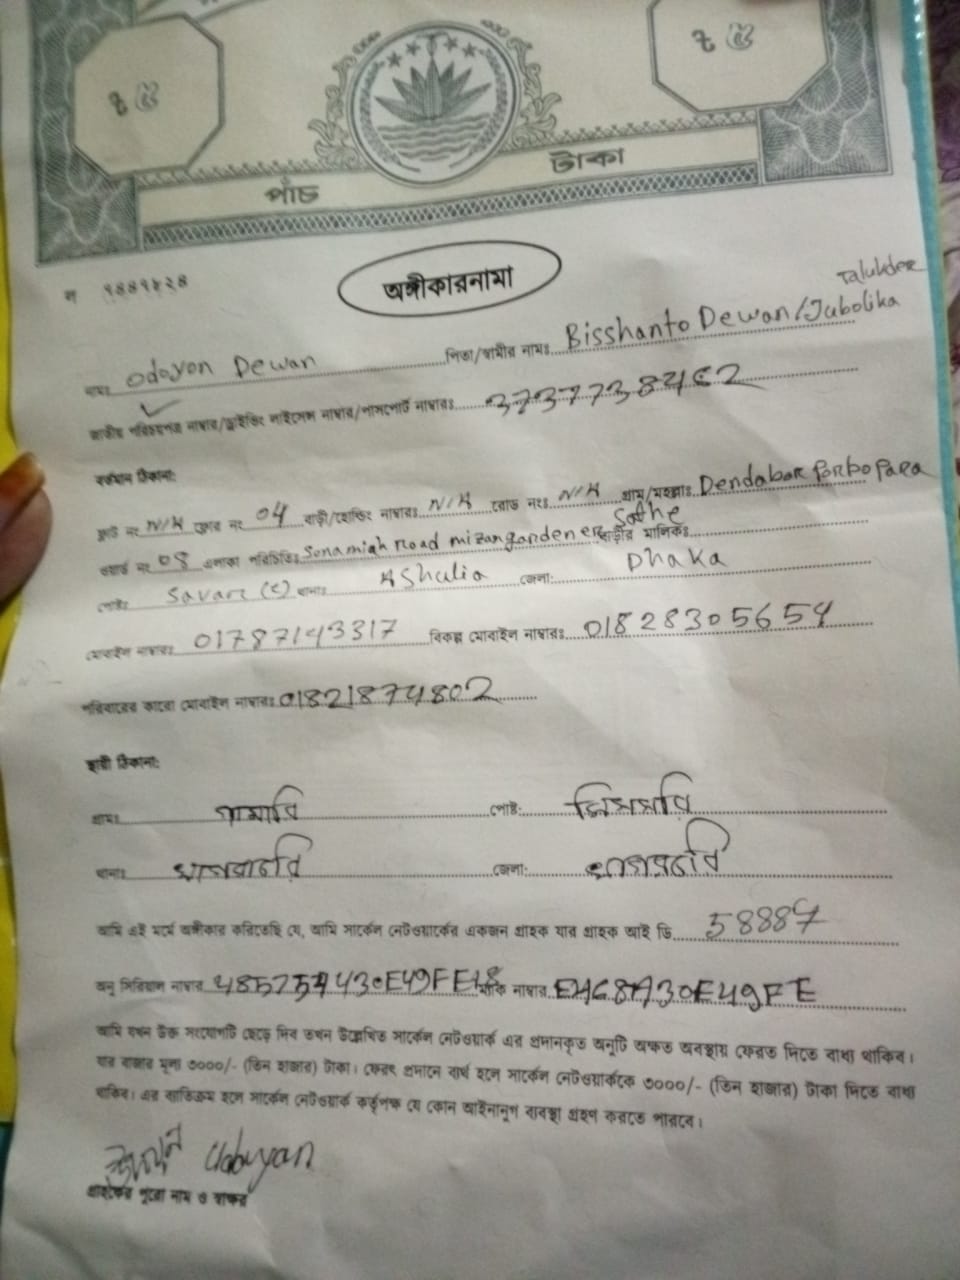 ৳ ৫ ৳ ৫
পাঁচ টাকা
অঙ্গীকারনামা
Talukder
নামঃ Odoyon Dewan পিতা/স্বামীর নামঃ Bisshanto Dewan/Jubolika
জাতীয় পরিচয়পত্র নাম্বার/ড্রাইভিং লাইসেন্স নাম্বার/পাসপোর্ট নাম্বারঃ
বর্তমান ঠিকানা:
ফ্লাট নং N/A ফ্লোর নং 04 বাড়ী/হোল্ডিং নাম্বারঃ N/A রোড নংঃ N/A গ্রাম/মহল্লাঃ Dendabar Porbo Para
ওয়ার্ড নং 08 এলাকা পরিচিতিঃ Sonamiah road বাড়ীর মালিকঃ
পোষ্টঃ Savar (c) থানাঃ Ashulia জেলা: Dhaka
মোবাইল নাম্বারঃ 01787143317 বিকল্প মোবাইল নাম্বারঃ 01828305654
পরিবারের কারো মোবাইল নাম্বারঃ 01821874802
স্থায়ী ঠিকানা:
গ্রামঃ পোষ্ট:
থানাঃ জেলা:
আমি এই মর্মে অঙ্গীকার করিতেছি যে, আমি সার্কেল নেটওয়ার্কের একজন গ্রাহক যার গ্রাহক আই ডি 58887
অনু সিরিয়াল নাম্বার ম্যাক নাম্বার
আমি যখন উক্ত সংযোগটি ছেড়ে দিব তখন উল্লেখিত সার্কেল নেটওয়ার্ক এর প্রদানকৃত অনুটি অক্ষত অবস্থায় ফেরত দিতে বাধ্য থাকিব।
যার বাজার মূল্য ৩০০০/- (তিন হাজার) টাকা। ফেরৎ প্রদানে ব্যর্থ হলে সার্কেল নেটওয়ার্ককে ৩০০০/- (তিন হাজার) টাকা দিতে বাধ্য
থাকিব। এর ব্যতিক্রম হলে সার্কেল নেটওয়ার্ক কর্তৃপক্ষ যে কোন আইনানুগ ব্যবস্থা গ্রহণ করতে পারবে।
গ্রাহকের পুরো নাম ও স্বাক্ষর